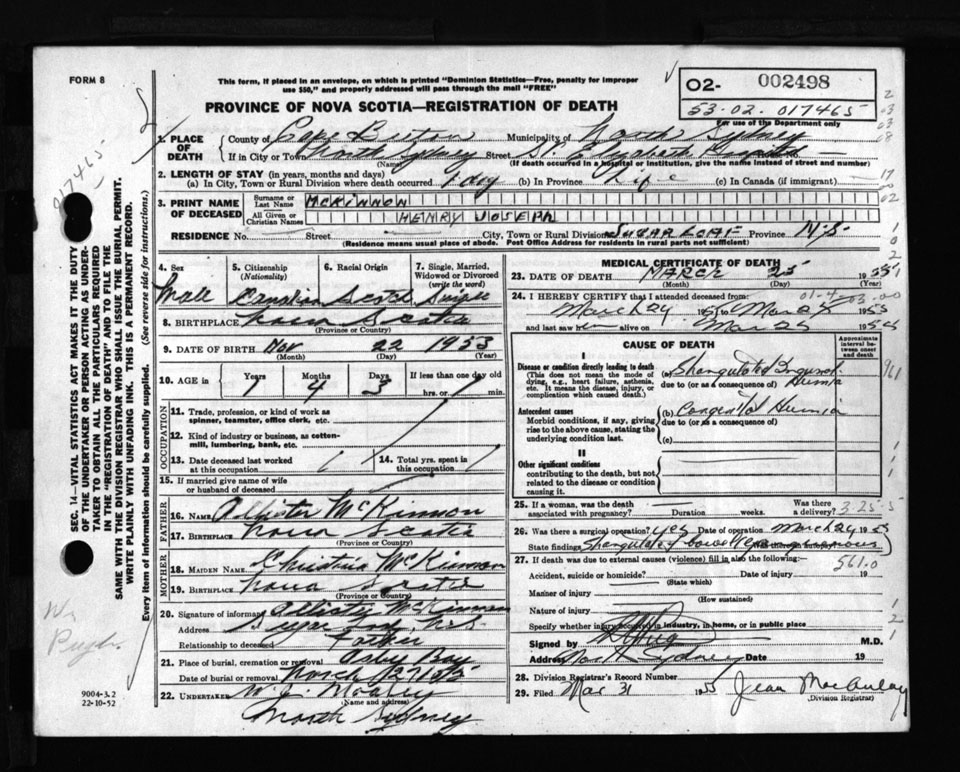 FORM 8
This form, if placed in an envelope, on which is printed "Dominion Statistics—Free, penalty for improper
use $50," and properly addressed will pass through the mail "FREE"
O2- 002498
53-02. 017465
For use of the Department only
PROVINCE OF NOVA SCOTIA—REGISTRATION OF DEATH
1. PLACE OF DEATH
County of Cape Breton Municipality of North Sydney
If in City or Town North Sydney Street St. Elizabeth Hospital
(Name) (If death occurred in a hospital or institution, give the name instead of street and number)
2. LENGTH OF STAY (in years, months and days)
(a) In City, Town or Rural Division where death occurred 1 day (b) In Province Life (c) In Canada (if immigrant)
3. PRINT NAME OF DECEASED
Surname or Last Name McKINNON
All Given or Christian Names HENRY JOSEPH
RESIDENCE No. Street City, Town or Rural Division SUGAR LOAF Province N.S.
(Residence means usual place of abode. Post Office Address for residents in rural parts not sufficient)
4. Sex Male
5. Citizenship (Nationality) Canadian
6. Racial Origin Scotch
7. Single, Married, Widowed or Divorced (write the word) Single
8. BIRTHPLACE Nova Scotia
(Province or Country)
9. DATE OF BIRTH Nov 22 1953
(Month) (Day) (Year)
10. AGE in Years Months Days If less than one day old
1 4 3 hrs. or min.
OCCUPATION
11. Trade, profession, or kind of work as spinner, teamster, office clerk, etc.
12. Kind of industry or business, as cotton-mill, lumbering, bank, etc.
13. Date deceased last worked at this occupation
14. Total yrs. spent in this occupation
15. If married give name of wife or husband of deceased
FATHER
16. NAME Allister McKinnon
17. BIRTHPLACE Nova Scotia
(Province or Country)
MOTHER
18. MAIDEN NAME Christina McKinnon
19. BIRTHPLACE Nova Scotia
(Province or Country)
20. Signature of informant Allister McKinnon
Address Sugar Loaf, N.S.
Relationship to deceased Father
21. Place of burial, cremation or removal Bay
Date of burial or removal March 27/55
22. UNDERTAKER W. J.
(Name and address)
North Sydney
MEDICAL CERTIFICATE OF DEATH
23. DATE OF DEATH MARCH 25 1955
(Month) (Day)
24. I HEREBY CERTIFY that I attended deceased from:
March 24 1955 to Mar 25 1955
and last saw him alive on Mar 25 1955
CAUSE OF DEATH
Approximate interval between onset and death
I
Disease or condition directly leading to death
(This does not mean the mode of dying, e.g., heart failure, asthenia, etc. It means the disease, injury, or complication which caused death.)
(a) Strangulated Inguinal Hernia
due to (or as a consequence of)
Antecedent causes
Morbid conditions, if any, giving rise to the above cause, stating the underlying condition last.
(b) Congenital Hernia
due to (or as a consequence of)
(c)
II
Other significant conditions
contributing to the death, but not related to the disease or condition causing it.
25. If a woman, was the death associated with pregnancy? Duration weeks. Was there a delivery?
26. Was there a surgical operation? yes Date of operation March 24 1955
State findings Strangulated bowel
27. If death was due to external causes (violence) fill in also the following:—
561.0
Accident, suicide or homicide? Date of injury 19
(State which)
Manner of injury
(How sustained)
Nature of injury
Specify whether injury occurred in industry, in home, or in public place
Signed by M.D.
Address North Sydney Date 19
28. Division Registrar's Record Number
29. Filed Mar 31 1955 Jean MacAulay
(Division Registrar)
SEC. 14—VITAL STATISTICS ACT MAKES IT THE DUTY OF THE UNDERTAKER OR PERSON ACTING AS UNDERTAKER TO OBTAIN ALL THE PARTICULARS REQUIRED IN THE "REGISTRATION OF DEATH" AND TO FILE THE SAME WITH THE DIVISION REGISTRAR WHO SHALL ISSUE THE BURIAL PERMIT.
WRITE PLAINLY WITH UNFADING INK. THIS IS A PERMANENT RECORD.
Every item of information should be carefully supplied. (See reverse side for instructions.)
9004-3.2
22-10-52